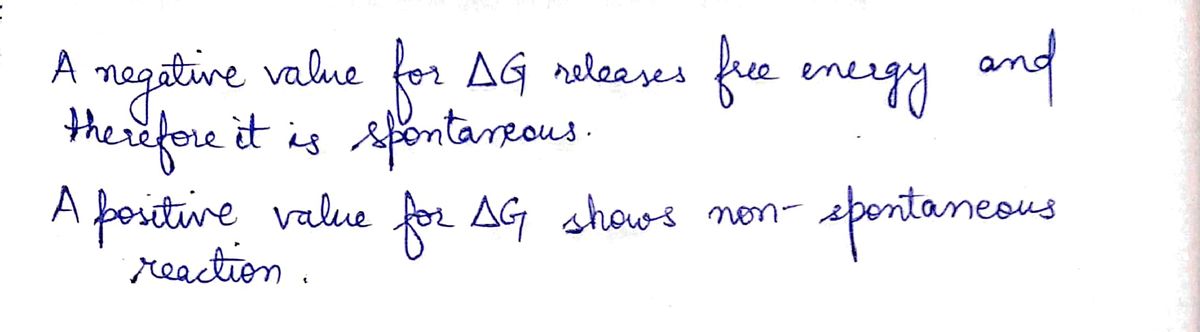 A negative value for ΔG releases free energy and
therefore it is spontaneous.
A positive value for ΔG shows non-spontaneous
reaction.